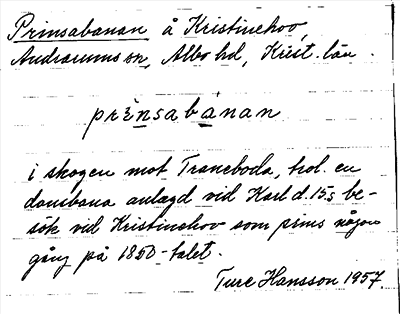 Prinsabanan å Kristinehov,
Andrarums sn, Albo hd, Krist. län.
prènsabánan
i skogen mot Traneboda, hol. en
dansbana anlagd vid Karl d. 15:s be-
sök vid Kristinehov som prins någon
gång på 1850-talet.
Ture Hansson 1957.